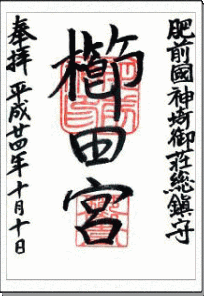 肥前國神埼御荘総鎮守
櫛田宮
奉拝 平成廿四年十月十日